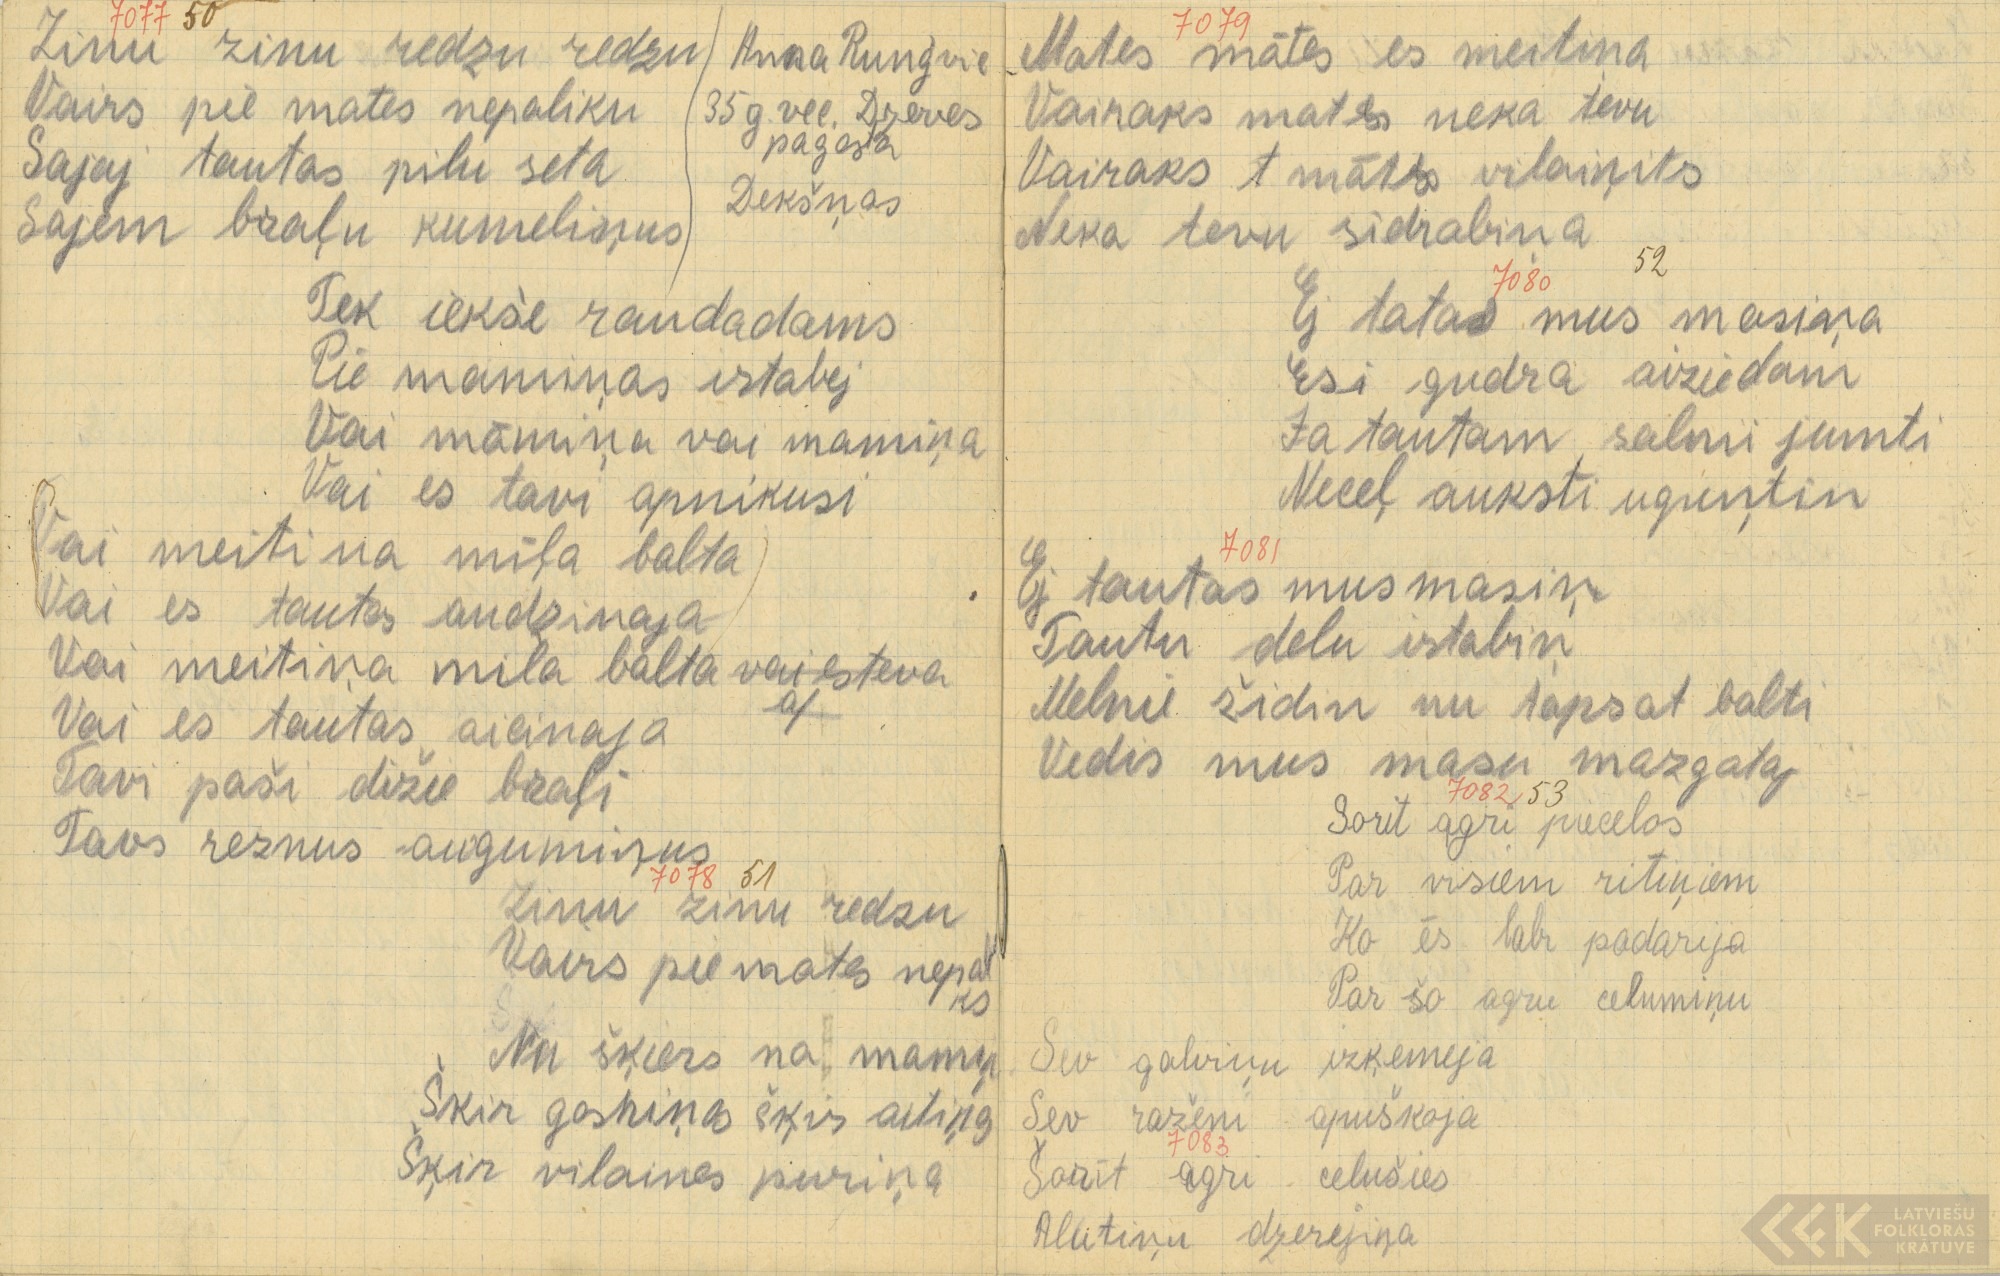 7077 50
Zinu zinu redzu redzu
Vairs pie mates nepaliku
Sajaj tautas pilu seta
Sajem braļu kumeliņus
Anna Rungvie
35 g. vec. Dzeves
pagasta
Dekšņas
Tek iekše raudadams
Pie mamiņas istabej
Vai māmiņa vai mamiņa
Vai es tavi apnikusi
Vai meitina mīļa balta
Vai es tautas audzinaja
Vai meitiņa mila balta vai es teva
Vai es tautas aicinaja
Tavi paši dižie braļi
Tavs reznus augumiņus
7078 51
Zinu zinu redzu
Vairs pie mates nepal
ks
Nu šķiers na mamiņ
Škir goshiņas šķir aitiņa
Šķir vilaines puriņa
7079
Mates mātes es meitiņa
Vairaks mates neka tevu
Vairaks t mātes vilaiņits
Neka tevu sidrabiņa
7080 52
Ej tatas mus masiņa
Esi gudra aiziedam
Ja tautam salmi jumti
Neceļ auksti uguņtin
7081
Ej tautas mus masiņ
Tautu delu istabiņ
Melnie židin nu tapsat balti
Vedis mus masu mazgataj
7082 53
Sorit agri piecelos
Par visiem ritiņiem
Ko ēs labr padarija
Par šo agru celumiņu
Sev galviņu izķemeja
Sev raženi apuškoja
7083
Šorīt agri celušies
Alutiņu dzerejiņa
LATVIEŠU
FOLKLORAS
KRĀTUVE